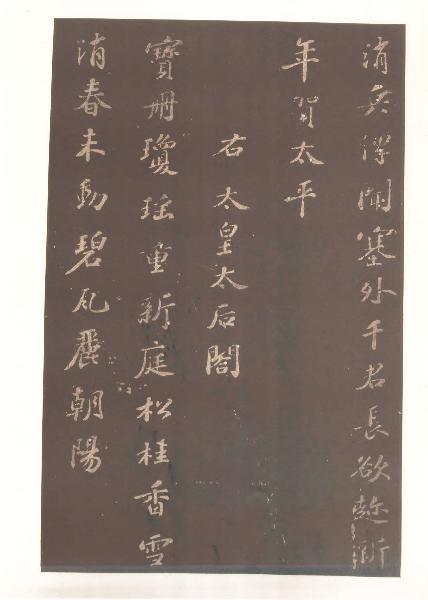 消兵傳聞塞外千君長欲趁新
年賀太平
右太皇太后閤
寶册瓊瑤重新庭松桂香雪
消春未動碧瓦麗朝陽